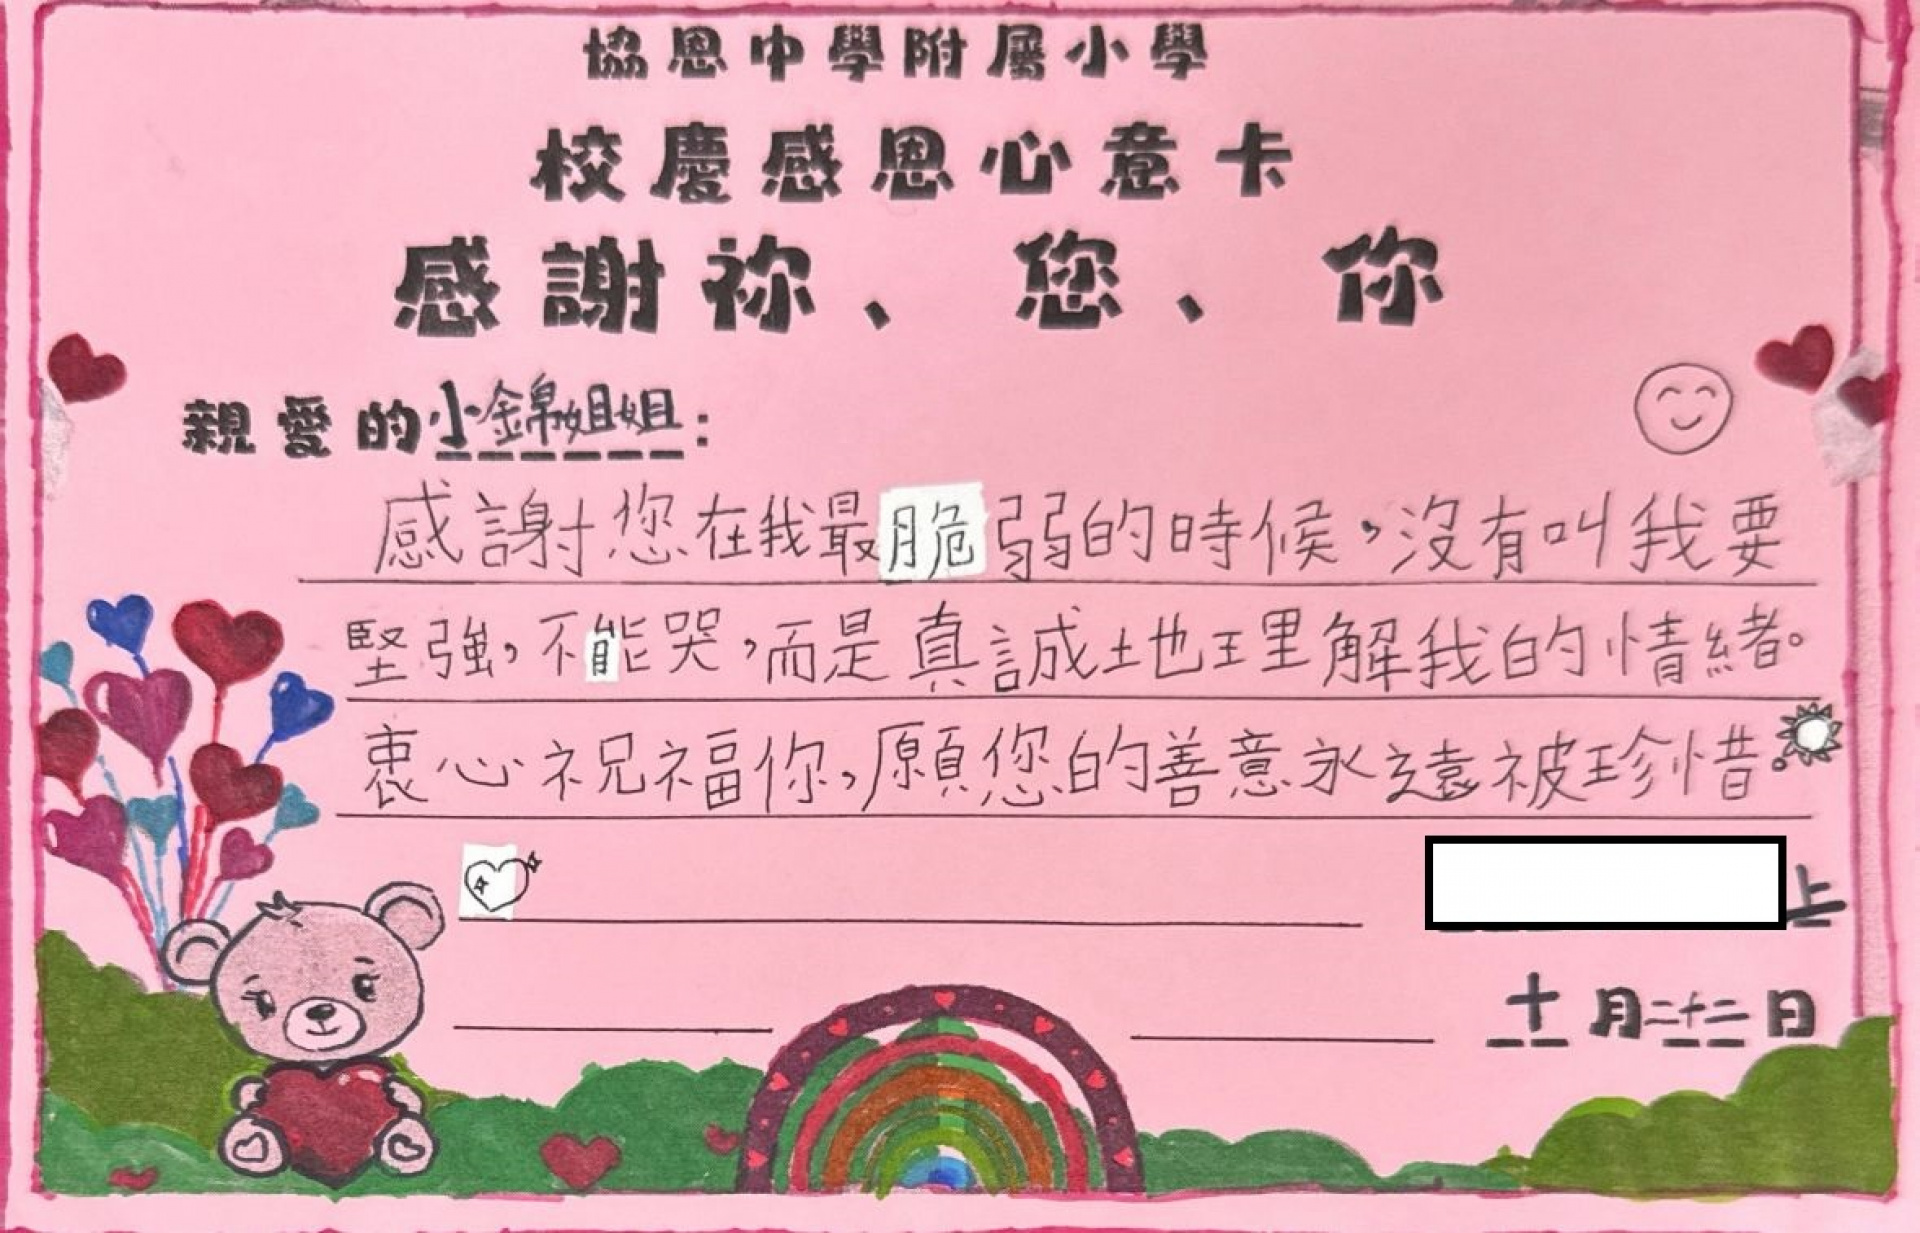 協恩中學附屬小學
校慶感恩心意卡
感謝祢、您、你
親愛的小錦姐姐：
感謝您在我最脆弱的時候，沒有叫我要
堅強，不能哭，而是真誠地理解我的情緒。
衷心祝福你，願您的善意永遠被珍惜。
上
十月二十二日